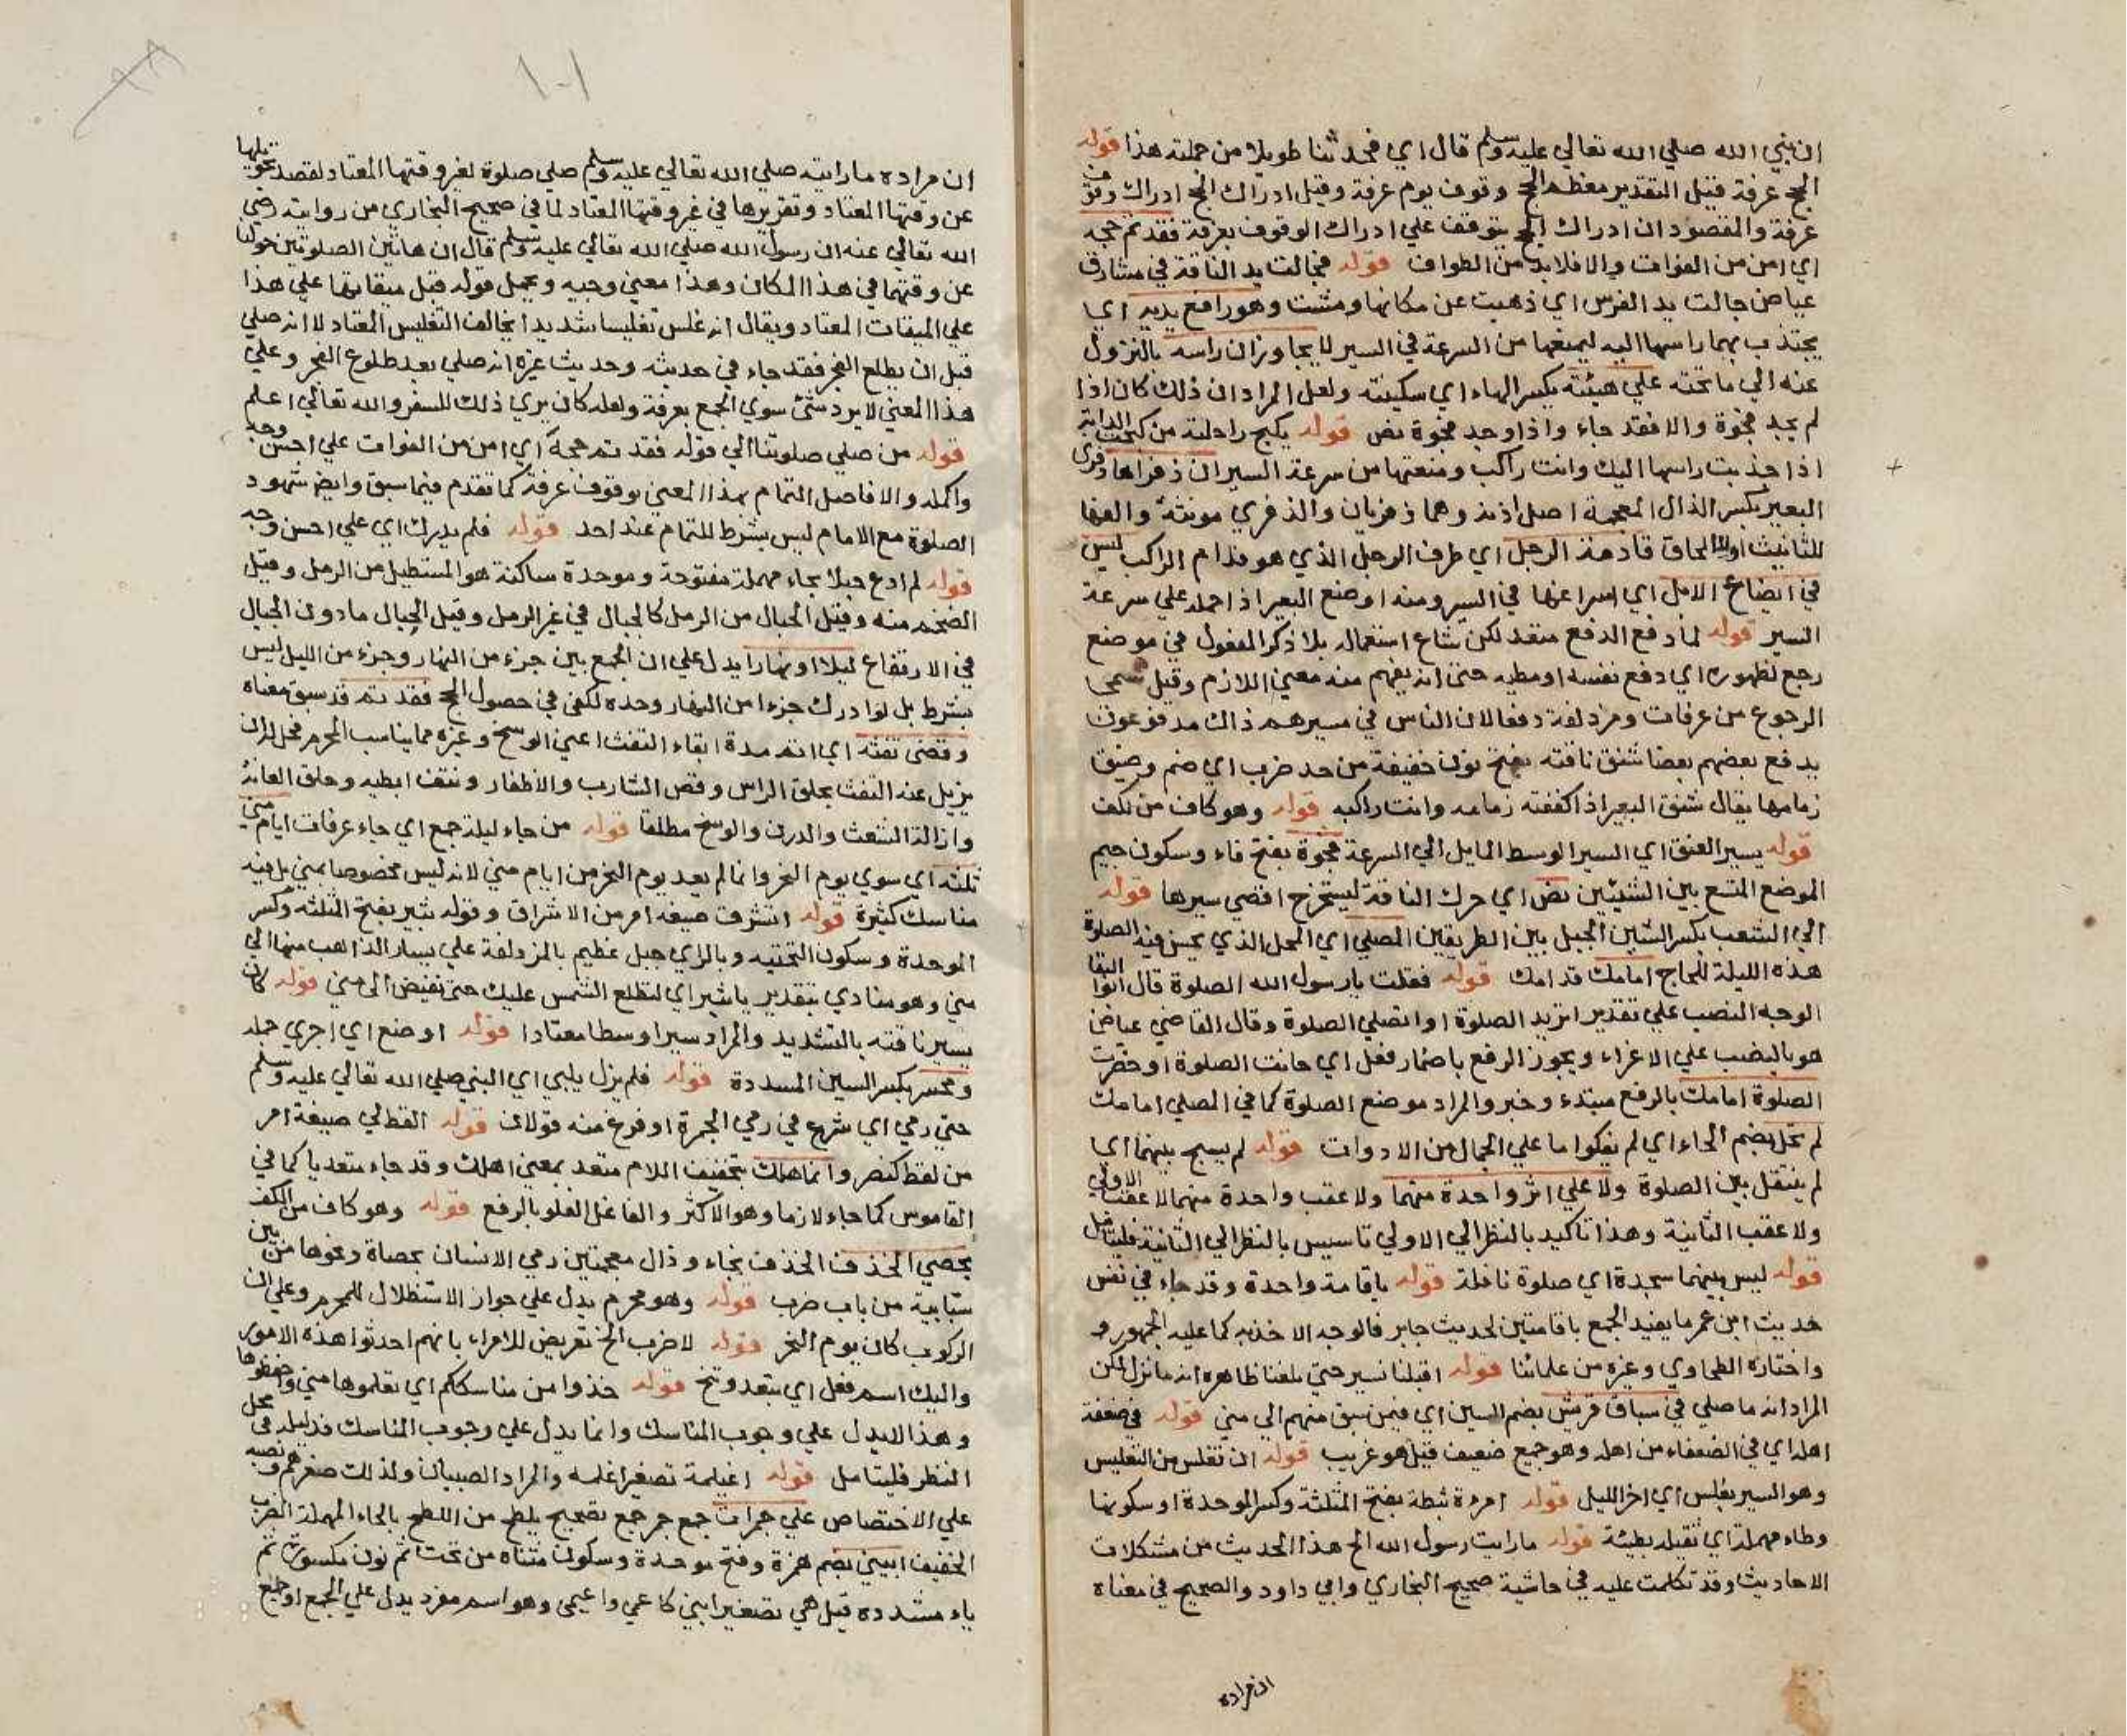 ان نبي الله صلي الله تعالي عليه وسلم قال اي فحدثنا طويلا من جملته هذا قوله
الحج عرفة فقيل التقدير معظم الحج وقوف يوم عرفة وقيل ادراك الحج ادراك وقوف
عرفة والمقصود ان ادراك الحج يتوقف علي ادراك الوقوف بعرفة فقد تم حجه
اي امن من الفوات والا فلا بد من الطواف قوله فجالت به الناقة في مشارق
عياض جالت به الفرس اي ذهبت عن مكانها ومشت وهو رافع يديه اي
يجتذب بهما راسها اليه ليمنعها من السرعة في السير لا يجاوزان راسه بالنزول
عنه الي ما تحته علي هيئته بكسر الهاء اي سكينته ولعل المراد ان ذلك كان اذا
لم يجد فجوة والا فقد جاء واذا وجد فجوة نص قوله يكبح راحلته من كبحت الدابة
اذا جذبت راسها اليك وانت راكب ومنعتها من سرعة السير ان ذفراها ذفرى
البعير بكسر الذال المعجمة اصل اذنه وهما ذفريان والذفري مونثة والفها
للتانيث او للالحاق قادمة الرحل اي طرف الرحل الذي هو قدام الراكب ليس
في ايضاع الابل اي اسراعها في السير ومنه اوضع البعير اذا حمله علي سرعة
السير قوله لما دفع الدفع متعد لكن شاع استعماله بلا ذكر المفعول في موضع
رجع لظهوره اي دفع نفسه او مطيه حتى انه يفهم منه معني اللازم وقيل سمي
الرجوع من عرفات ومزدلفة دفعا لان الناس في مسيرهم ذاك مدفوعون
يدفع بعضهم بعضا شنق ناقته بفتح نون خفيفة من حد ضرب اي ضم وضيق
زمامها يقال شنق البعير اذا كففته زمامه وانت راكبه قوله وهو كاف من تكف
قوله يسير العنق اي السير الوسط المايل الي السرعة فجوة بفتح فاء وسكون جيم
الموضع المتسع بين الشيئين نص اي حرك الناقة ليستخرج اقصي سيرها قوله
الي الشعب بكسر الشين الجبل بين الطريقين المصلي اي المحل الذي يحسن فيه الصلوة
هذه الليلة للحاج امامك قدامك قوله فقلت يارسول الله الصلوة قال ابوالبقا
الوجه النصب علي تقدير اتريد الصلوة او اتصلي الصلوة وقال القاضي عياض
هو بالنصب علي الاغراء ويجوز الرفع باضمار فعل اي حانت الصلوة او حضرت
الصلوة امامك بالرفع مبتدء وخبر والمراد موضع الصلوة كما في المصلي امامك
لم تحل بضم الحاء اي لم يفكوا ما علي الجمال من الادوات قوله لم يسبح بينهما اي
لم يتنقل بين الصلوة ولا علي اثر واحدة منهما ولا عقب واحدة منهما لا عقب الاولي
ولا عقب الثانية وهذا تاكيد بالنظر الي الاولي تاسيس بالنظر الي الثانية فليتامل
قوله ليس بينهما سجدة اي صلوة نافلة قوله باقامة واحدة وقد جاء في نفس
حديث ابن عمر ما يفيد الجمع باقامتين لحديث جابر فالوجه الاخذ به كما عليه الجمهور و
واختاره الطحاوي وغيره من علمائنا قوله اقبلنا نسير حتي بلغنا ظاهره انه ما نزل لكن
المراد انه ما صلي في سباق قريش بضم السين اي فيمن سبق منهم الي مني قوله في ضعفة
اهله اي في الضعفاء من اهله وهو جمع ضعيف قيل هو غريب قوله ان تغلس من التغليس
وهو السير بغلس اي اخر الليل قوله امرءة ثبطة بفتح المثلثة وكسر الموحدة او سكونها
وطاء مهملة اي ثقيلة بطيئة قوله ما رايت رسول الله الخ هذا الحديث من مشكلات
الاحاديث وقد تكلمت عليه في حاشية صحيح البخاري وابي داود والصحيح في معناه
ان مراده
١٠١
ان مراده ما رايته صلي الله تعالي عليه وسلم صلي صلوة لغير وقتها المعتاد لقصد تحويلها
عن وقتها المعتاد وتقريرها في غير وقتها المعتاد لما في صحيح البخاري من روايته رضي
الله تعالي عنه ان رسول الله صلي الله تعالي عليه وسلم قال ان هاتين الصلوتين حولتا
عن وقتهما في هذا المكان وهذا معني وجيه ويحمل قوله قبل ميقاتها علي هذا
علي الميقات المعتاد ويقال انه غلس تغليسا شديدا يخالف التغليس المعتاد لا انه صلي
قبل ان يطلع الفجر فقد جاء في حديثه وحديث غيره انه صلي بعد طلوع الفجر وعلي
هذا المعني لا يرد شئ سوي الجمع بعرفة ولعله كان يري ذلك للسفر والله تعالي اعلم
قوله من صلي صلوتنا الي قوله فقد تم حجه اي امن من الفوات علي احسن وجه
واكمله والا فاصل التمام بهذا المعني بوقوف عرفة كما تقدم فيما سبق وايض شهود
الصلوة مع الامام ليس بشرط للتمام عند احد قوله فلم يدرك اي علي احسن وجه
قوله لم ادع حبلا بحاء مهملة مفتوحة وموحدة ساكنة هو المستطيل من الرمل وقيل
الضخم منه وقيل الحبال من الرمل كالجبال في غير الرمل وقيل الحبال ما دون الجبال
في الارتفاع ليلا او نهارا يدل علي ان الجمع بين جزء من النهار وجزء من الليل ليس
بشرط بل لو ادرك جزءا من النهار وحده لكفي في حصول الحج فقد تم قد سبق معناه
وقضى تفثه اي اتم مدة ابقاء التفث اعني الوسخ وغيره مما يناسب المحرم فحل له ان
يزيل عنه التفث بحلق الراس وقص الشارب والاظفار ونتف ابطيه وحلق العانة
وازالة الشعث والدرن والوسخ مطلقا قوله من جاء ليلة جمع اي جاء عرفات ايام مني
ثلثة اي سوي يوم النحر وانما لم يعد يوم النحر من ايام مني لانه ليس مخصوصا بمني بل فيه
مناسك كثيرة قوله اشرق صيغة امر من الاشراق وقوله ثبير بفتح المثلثة وكسر
الموحدة وسكون التحتيه وبالراي جبل عظيم بالمزدلفة علي يسار الذاهب منها الي
مني وهو منادي بتقدير ياثبير اي لتطلع الشمس عليك حتى نفيض الى مني قوله كان
يسير ناقته بالتشديد والمراد سيرا وسطا معتادا قوله اوضع اي اجري جمله
ومحسر بكسر السين المسددة قوله فلم يزل يلبي اي النبي صلي الله تعالي عليه وسلم
حتي رمي اي شرع في رمي الجمرة او فرغ منه قولان قوله القط لي صيغة امر
من لقط كنصر وانما هلك بتخفيف اللام متعد بمعني اهلك وقد جاء متعديا كما في
القاموس كما جاء لازما وهو الاكثر والفاعل الغلو بالرفع قوله وهو كاف من الكف
بحصي الخذف الخذف بخاء وذال معجمتين رمي الانسان بحصاة ونحوها من بين
سبابيه من باب ضرب قوله وهو محرم يدل علي جواز الاستظلال للمحرم وعلي ان
الركوب كان يوم النحر قوله لا ضرب الخ تعريض للامراء بانهم احدثوا هذه الامور
واليك اسم فعل اي تبعد وتنح قوله خذوا من مناسككم اي تعلموها مني واحفظوها
وهذا لا يدل علي وجوب المناسك وانما يدل علي وجوب المناسك فدليله في محل
النظر فليتامل قوله اغيلمة تصغير اغلمة والمراد الصبيان ولذلك صغرهم ونصبه
علي الاختصاص علي حمرات جمع حمر جمع تصحيح يلطح من اللطح بالحاء المهملة الضرب
الخفيف ابيني بضم همزة وفتح موحدة وسكون مثناة من تحت ثم نون مكسورة ثم
ياء مشددة قيل هي تصغير ابني كاعمي واعيمى وهو اسم مفرد يدل علي الجمع او جمع